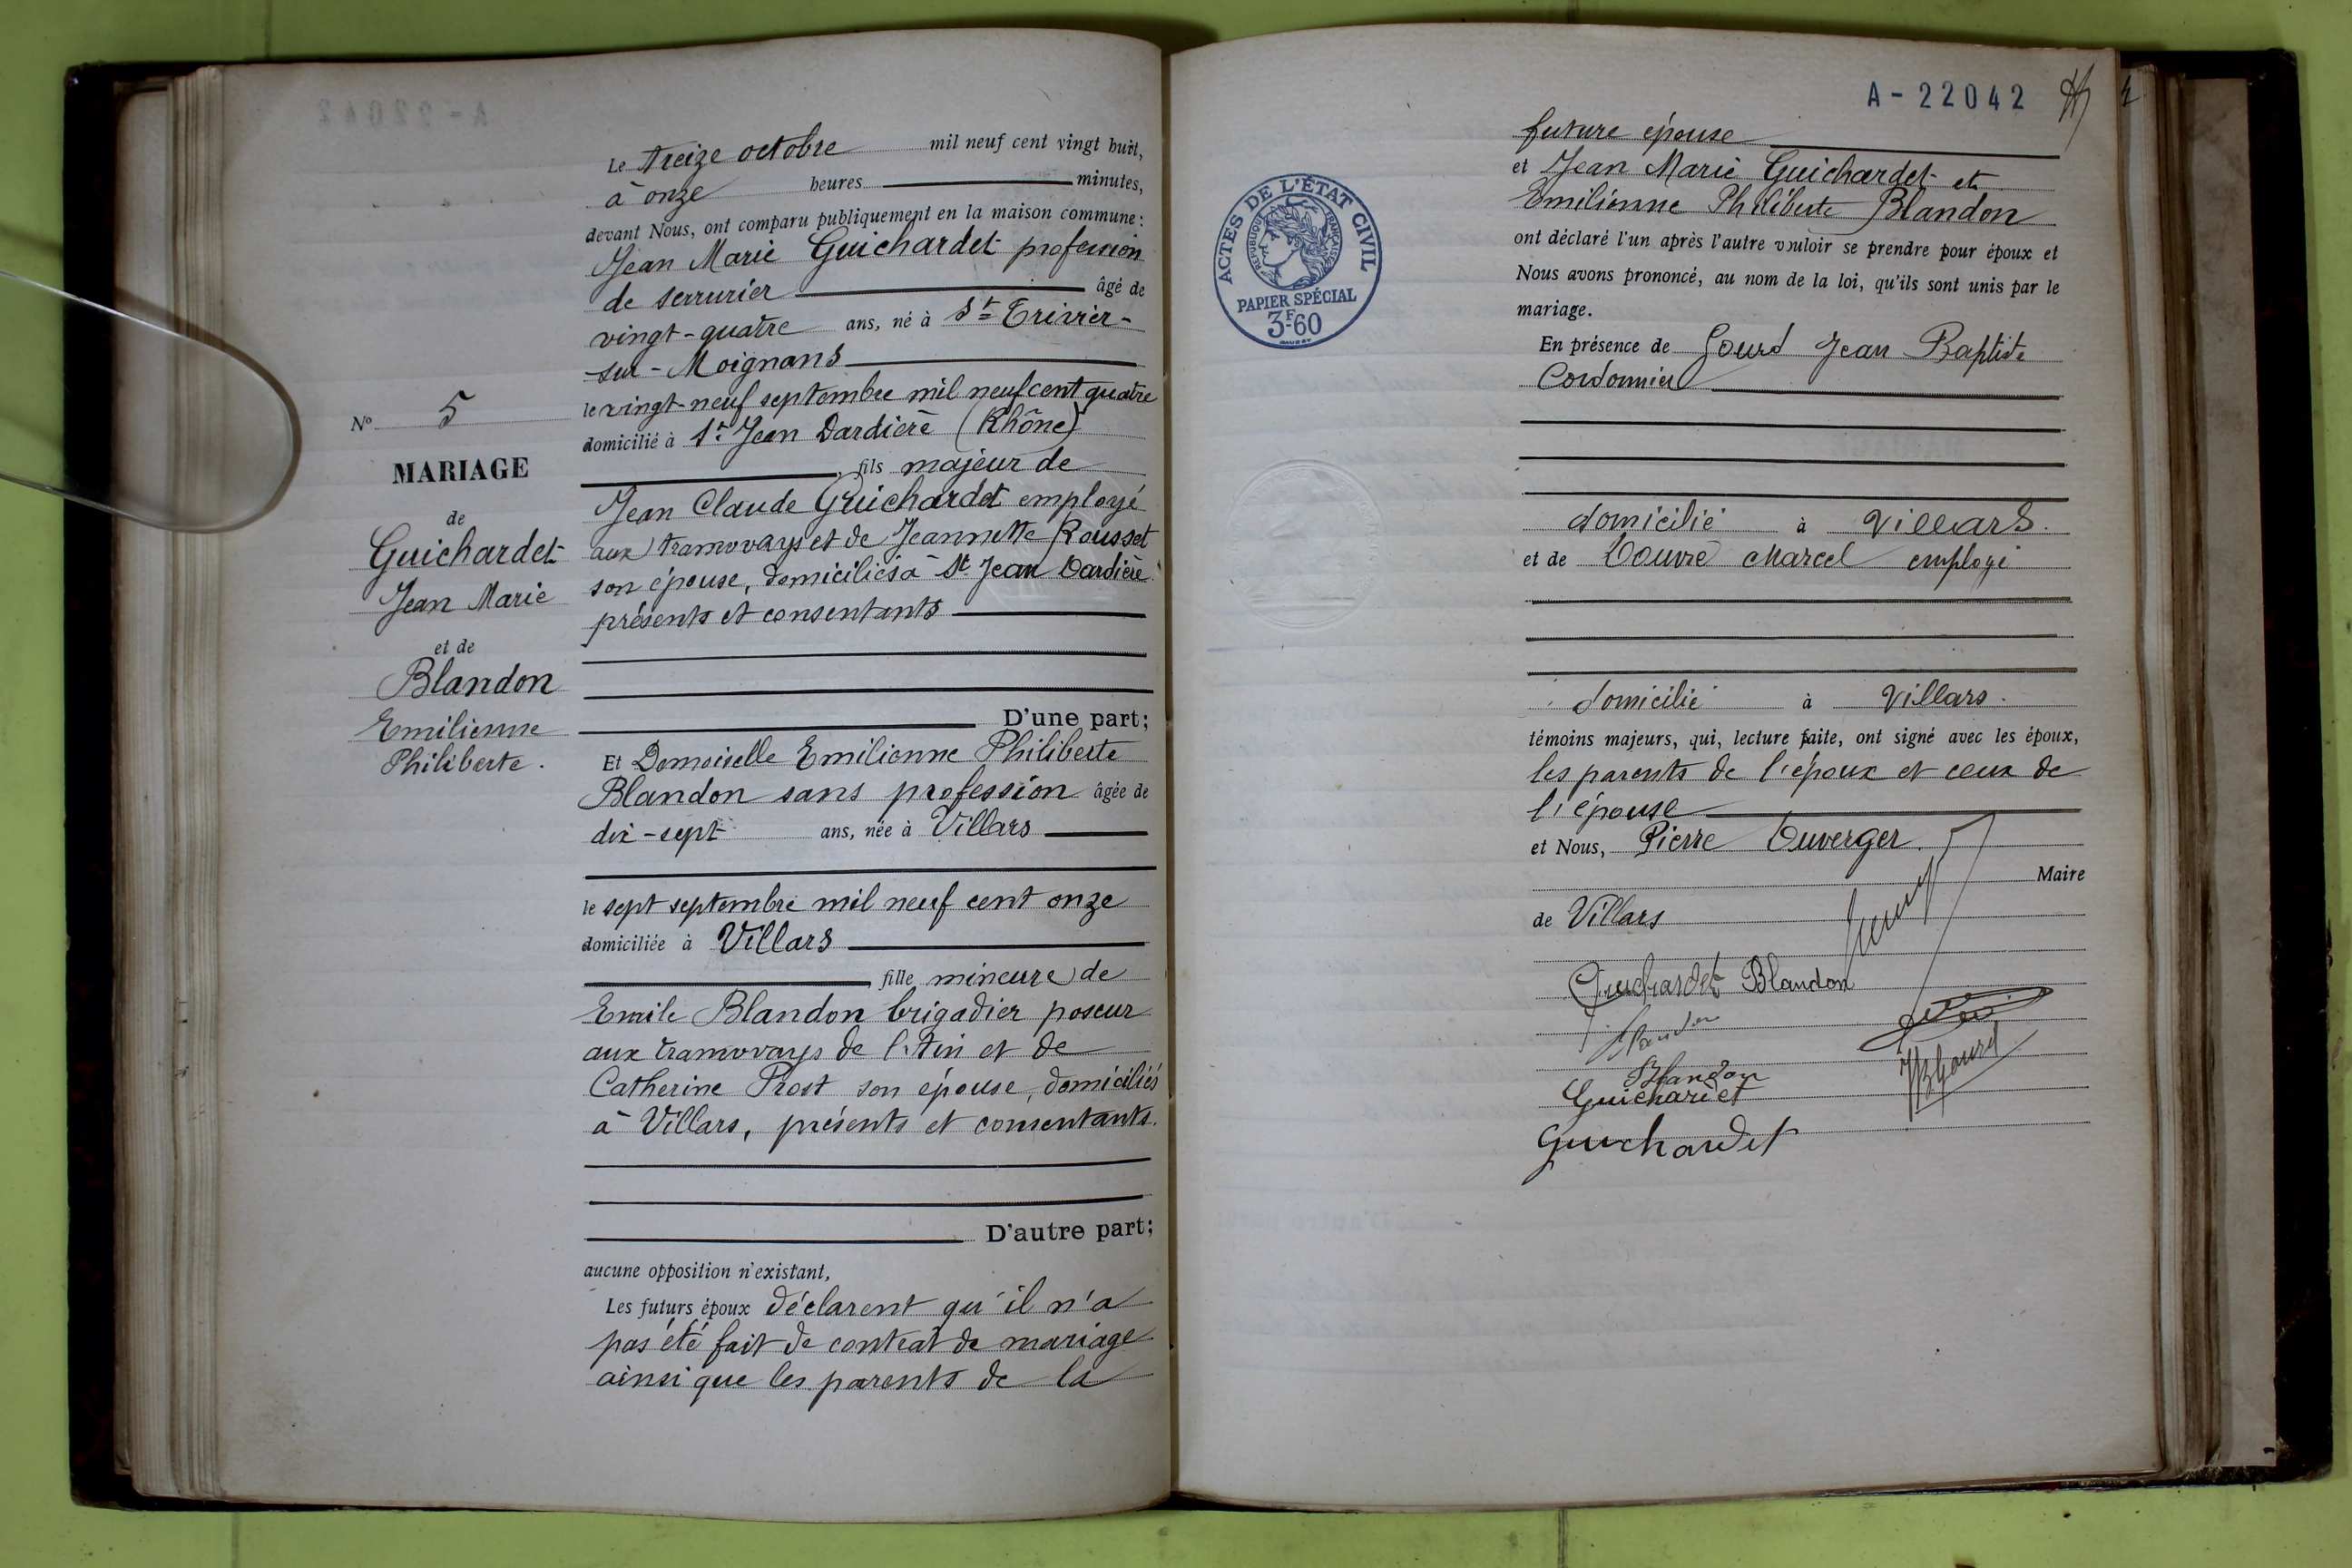 Le treize octobre mil neuf cent vingt huit,
à onze heures minutes,
devant Nous, ont comparu publiquement en la maison commune :
Jean Marie Guichardet profession
de serrurier âgé de
vingt-quatre ans, né à St Trivier-
sur-Moignans
le vingt-neuf septembre mil neuf cent quatre
domicilié à St Jean Dardière (Rhône)
fils majeur de
Jean Claude Guichardet employé
aux tramways et de Jeannette Rousset
son épouse, domiciliés à St Jean Dardière
présents et consentants
D'une part;
Et Demoiselle Emilienne Philiberte
Blandon sans profession âgée de
dix-sept ans, née à Villars
le sept septembre mil neuf cent onze
domiciliée à Villars
fille mineure de
Emile Blandon brigadier poseur
aux tramways de l'Ain et de
Catherine Prost son épouse, domiciliés
à Villars, présents et consentants.
D'autre part;
aucune opposition n'existant,
Les futurs époux déclarent qu'il n'a
pas été fait de contrat de mariage
ainsi que les parents de la
No 5
MARIAGE
de
Guichardet
Jean Marie
et de
Blandon
Emilienne
Philiberte.
A-22042
future épouse
et Jean Marie Guichardet et
Emilienne Philiberte Blandon
ont déclaré l'un après l'autre vouloir se prendre pour époux et
Nous avons prononcé, au nom de la loi, qu'ils sont unis par le
mariage.
En présence de Gourd Jean Baptiste
Cordonnier
domicilié à Villars.
et de Louvre Marcel employé
domicilié à Villars.
témoins majeurs, qui, lecture faite, ont signé avec les époux,
les parents de l'époux et ceux de
l'épouse
et Nous, Pierre Duverger.
Maire
de Villars
Guichardet Blandon
Blandon
Blandon
JB Gourd
Guichardet
Guichardet
ACTES DE L'ÉTAT CIVIL
RÉPUBLIQUE FRANÇAISE
PAPIER SPÉCIAL
3F60